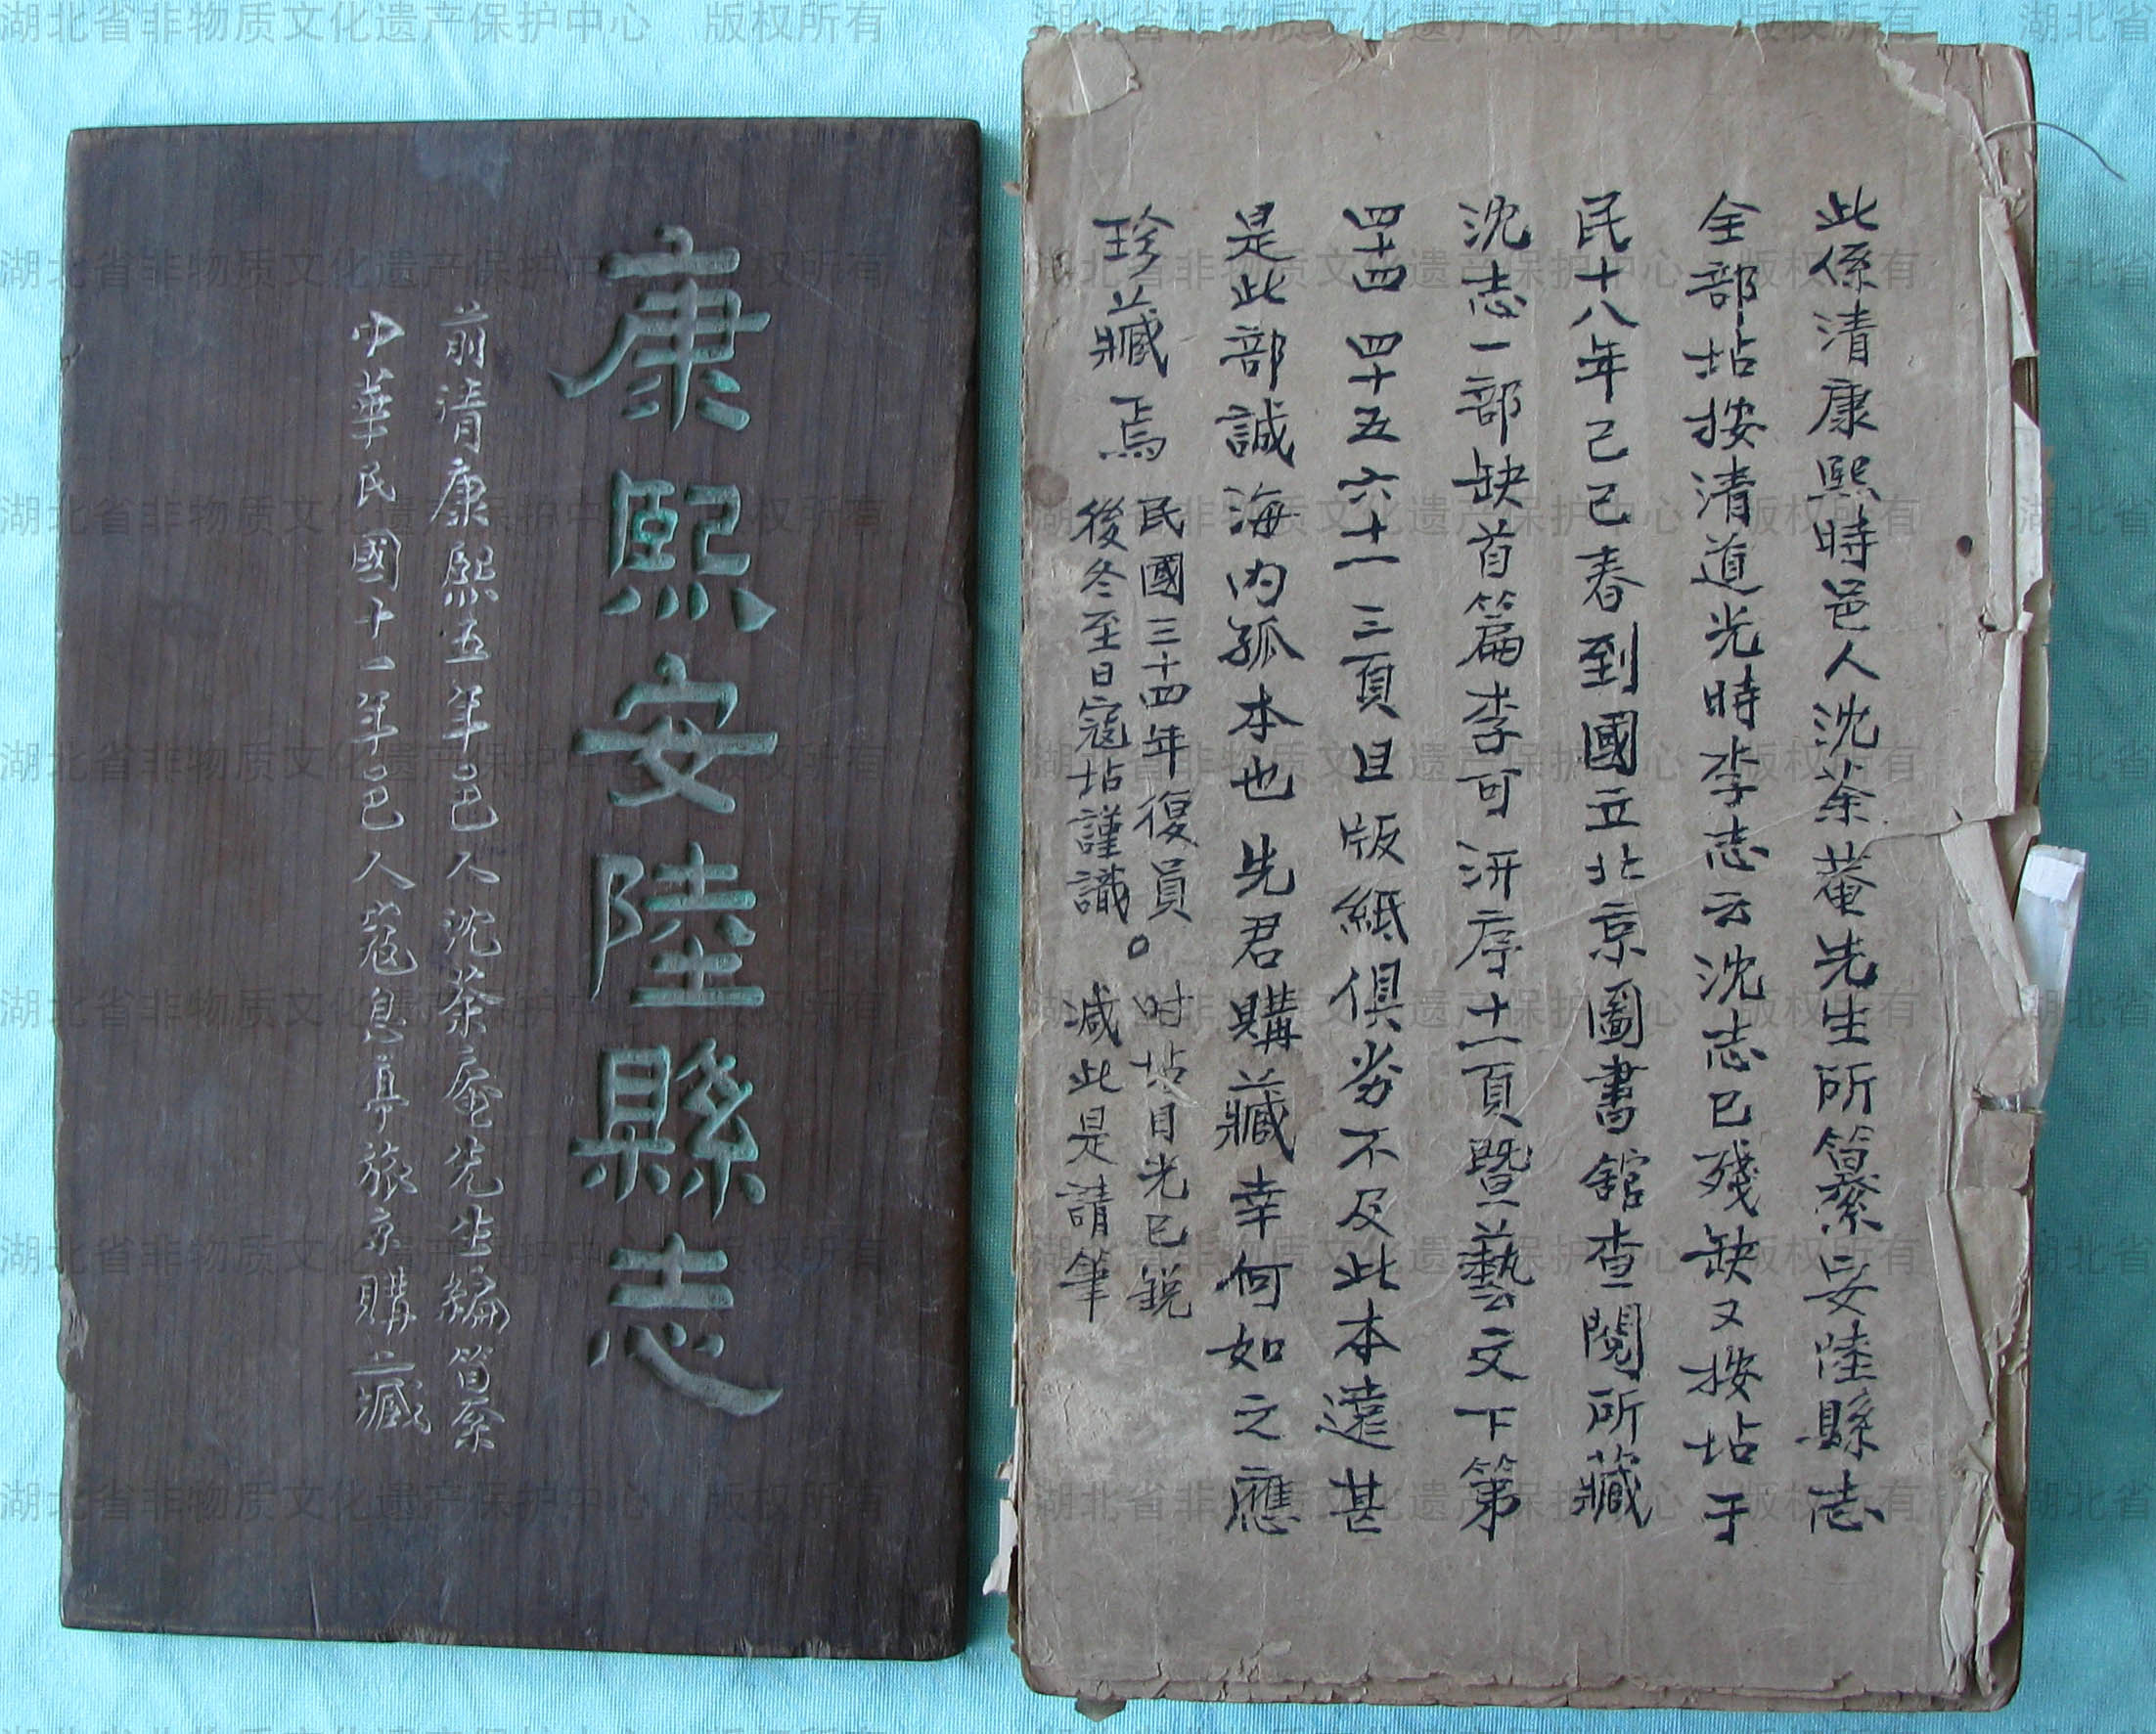 康熙安陸縣志
前清康熙五年邑人沈荼庵先生編纂
中華民國十一年邑人寇息亭旅京購藏
此係清康熙時邑人沈荼菴先生所纂安陸縣志
全部坫按清道光時李志云沈志已殘缺又按坫于
民十八年己巳春到國立北京圖書館查閱所藏
沈志一部缺首篇李可汧序十一頁暨藝文下第
四十四 四十五 六十一 三頁且版紙俱劣不及此本遠甚
是此部誠海内孤本也先君購藏幸何如之應
珍藏焉
民國三十四年復員
後冬至日寇坫謹識。
时坫目光已銳
減此是請筆
湖北省非物质文化遗产保护中心 版权所有